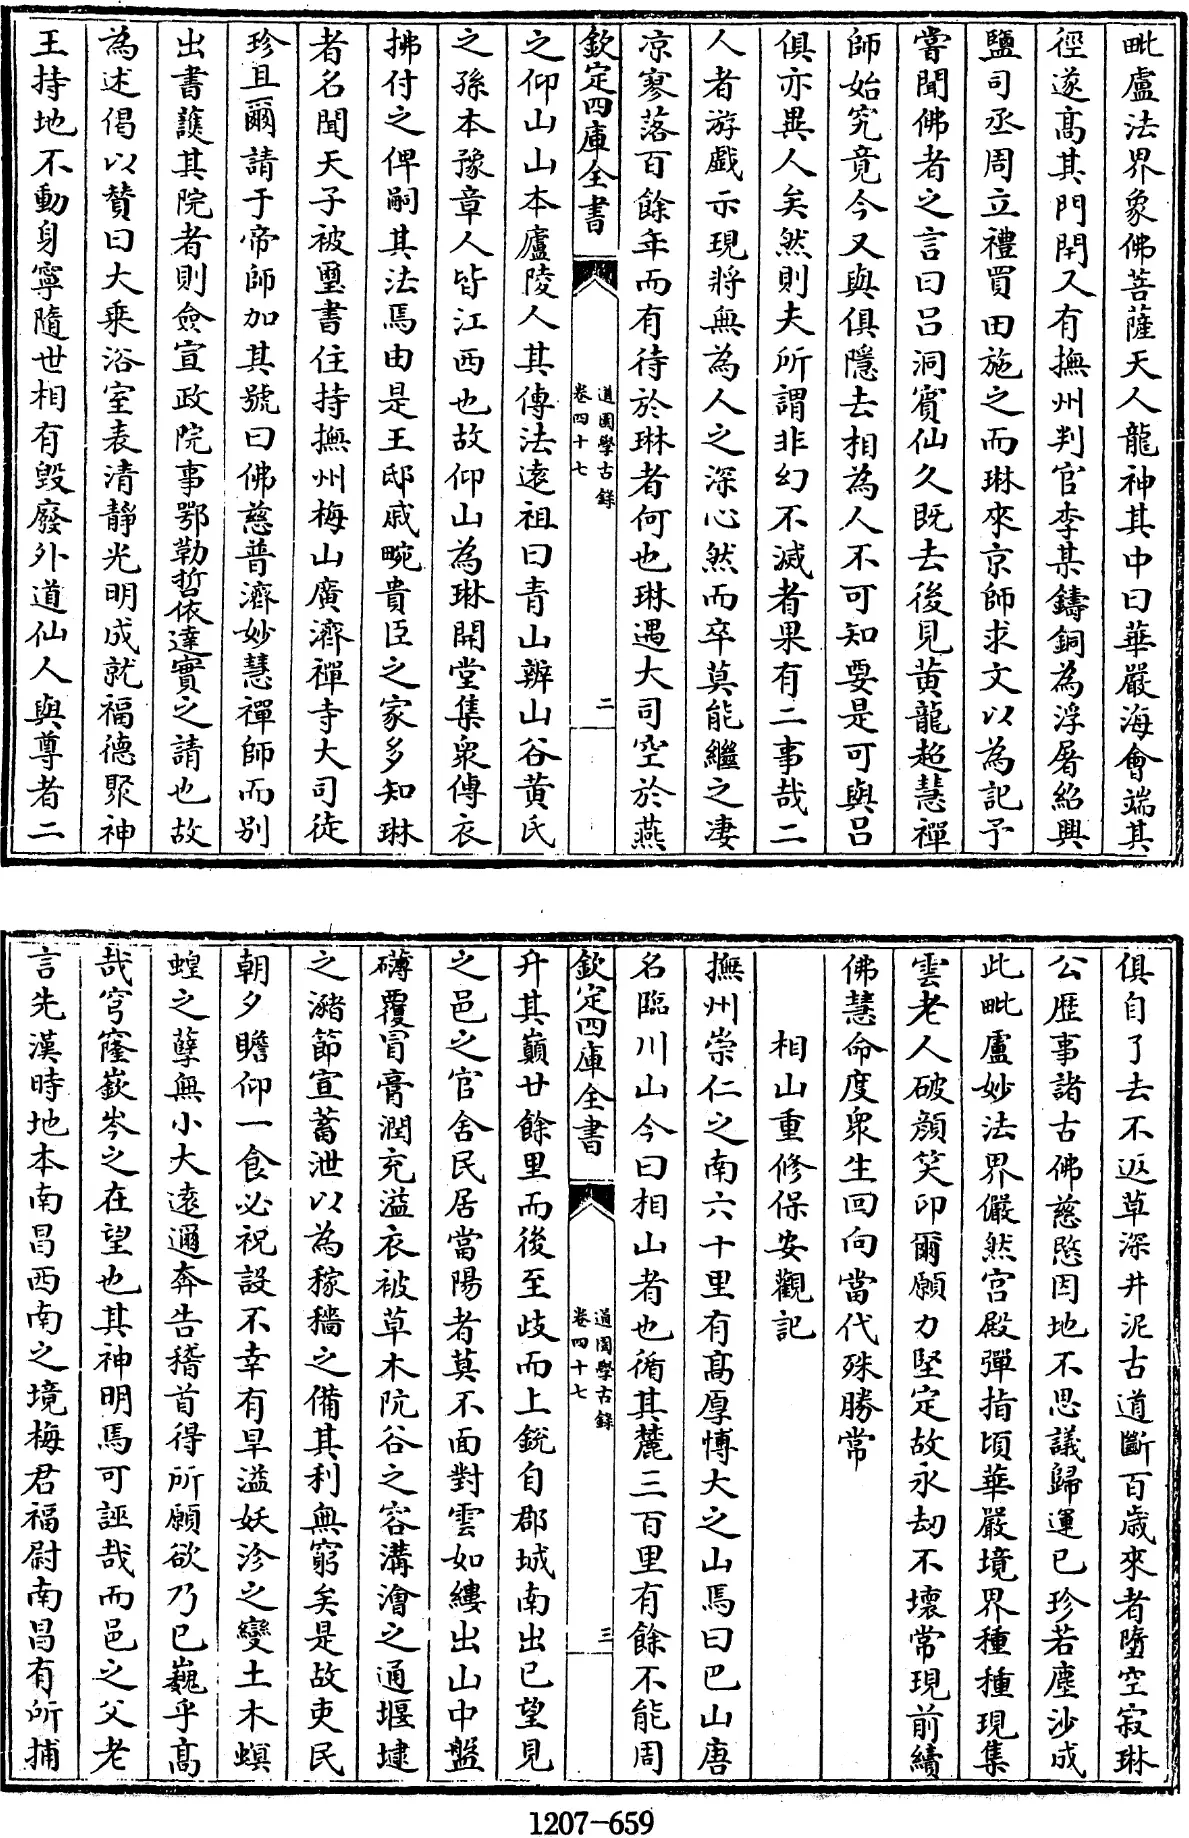 毗盧法界象佛菩薩天人龍神其中曰華嚴海會端其
徑遂高其門閈又有撫州判官李某鑄銅為浮屠紹興
鹽司丞周立禮買田施之而琳來京師求文以為記予
嘗聞佛者之言曰呂洞賓仙久既去後見黄龍超慧禪
師始究竟今又與俱隱去相為人不可知要是可與呂
俱亦異人矣然則夫所謂非幻不滅者果有二事哉二
人者游戲示現將無為人之深心然而卒莫能繼之凄
凉寥落百餘年而有待於琳者何也琳遇大司空於燕
欽定四庫全書
道園學古錄
卷四十七
二
之仰山山本廬陵人其傳法逺祖曰青山辨山谷黄氏
之孫本豫章人皆江西也故仰山為琳開堂集衆傳衣
拂付之俾嗣其法焉由是王邸戚畹貴臣之家多知琳
者名聞天子被璽書住持撫州梅山廣濟禪寺大司徒
珍且爾請于帝師加其號曰佛慈普濟妙慧禪師而别
出書護其院者則僉宣政院事鄂勒哲依達實之請也故
為述偈以賛曰大乘浴室表清靜光明成就福德聚神
王持地不動身寧隨世相有毁廢外道仙人與尊者二
俱自了去不返草深井泥古道斷百歳來者墮空寂琳
公歴事諸古佛慈愍因地不思議歸運已珍若塵沙成
此毗盧妙法界儼然宫殿彈指頃華嚴境界種種現集
雲老人破顔笑印爾願力堅定故永劫不壞常現前續
佛慧命度衆生回向當代殊勝常
相山重修保安觀記
撫州崇仁之南六十里有高厚博大之山焉曰巴山唐
名臨川山今曰相山者也循其麓三百里有餘不能周
欽定四庫全書
道園學古錄
卷四十七
三
升其巔廿餘里而後至歧而上銳自郡城南出已望見
之邑之官舍民居當陽者莫不面對雲如縷出山中盤
礴覆冒膏潤充溢衣被草木阬谷之容溝澮之通堰埭
之瀦節宣蓄泄以為稼穡之備其利無窮矣是故吏民
朝夕瞻仰一食必祝設不幸有旱溢妖沴之變土木螟
蝗之孽無小大逺邇奔告稽首得所願欲乃已巍乎高
哉穹窿嶔岑之在望也其神明焉可誣哉而邑之父老
言先漢時地本南昌西南之境梅君福尉南昌有所捕
1207-659